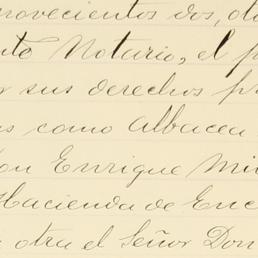 novecientos dos, ot
nto Notario, el p
r sus derechos p
as como albacea
on Enrique Mi
Hacienda de Enc
otra el Señor Don